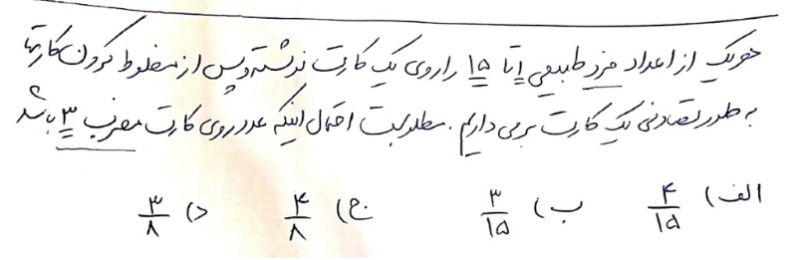 هریک از اعداد فرد طبیعی ۱ تا ۱۵ را روی یک کارت نوشته و پس از مخلوط کردن کارتها
به طور تصادفی یک کارت برمی داریم. مطلوبست احتمال اینکه عدد روی کارت مضرب ۳ باشد
الف) ۴/۱۵ ب) ۳/۱۵ ج) ۴/۸ د) ۳/۸